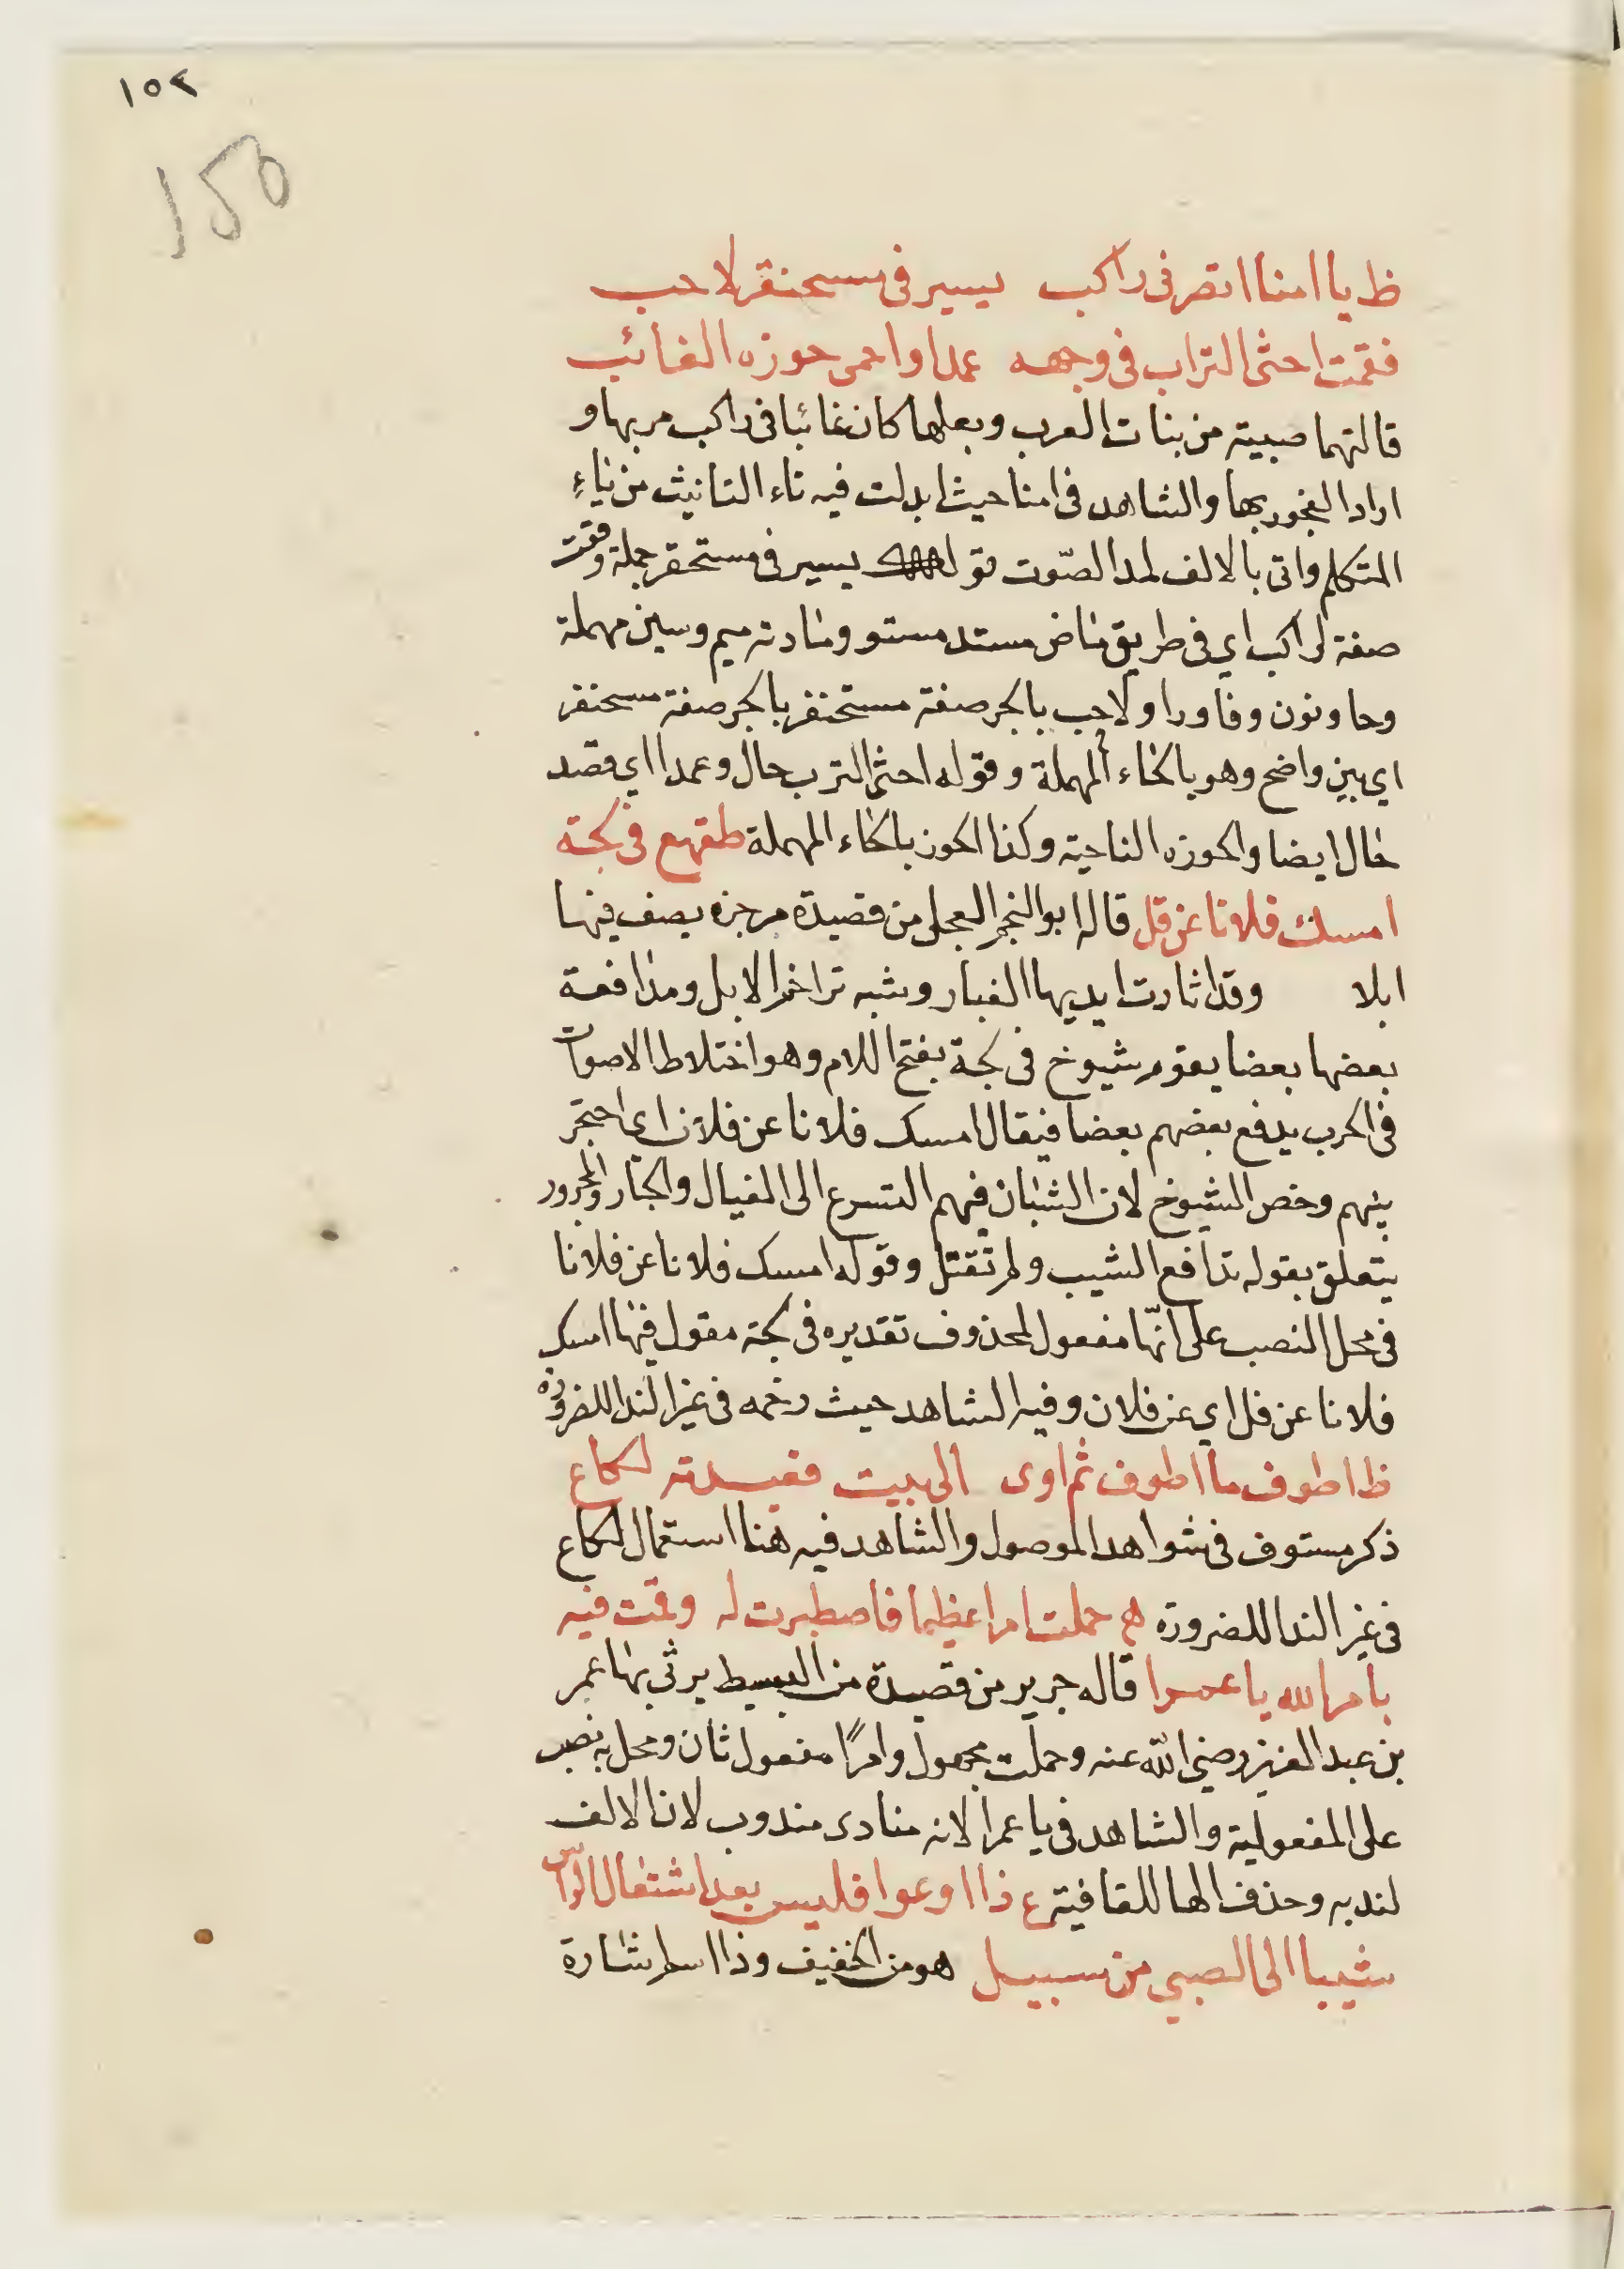 ١٥٢
150
ظ يا امنا اتصرفى راكب يسير فى مسحنفر لاحب
فقمت احثى التراب فى وجهه عمدا واحمى حوزه الغائب
قالتهما صبية من بنات العرب وبعلها كان غائبا فى راكب مر بها و
اراد الفجور بها والشاهد فى امنا حيث ابدلت فيه تاء التانيث من ياء
المتكلم واتى بالالف لمد الصّوت قوله يسير فى مستحقر جملة وقعت
صفة لراكب اي فى طريق ماض مستد مستو ومادته ميم وسين مهملة
وحا ونون وفا ورا ولاحب بالجر صفة مستحنفر بالجر صفة مسحنفر
اي بين واضح وهو بالحاء المهملة وقوله احثى الترب حال وعمدا اي قصد
حال ايضا والحوزه الناحية وكذا الحوز بالحاء المهملة طقهع فى لجة
امسك فلانا عن قل قاله ابو النجم العجلى من قصيدة مرجزه يصف فيها
ابلا وقد اثارت ايديها الغبار وشبه تزاحم الابل ومدافعة
بعضها بعضا بقوم شيوخ فى لجة بفتح اللام وهو اختلاط الاصوات
فى الحرب يدفع بعضهم بعضا فيقال امسك فلانا عن فلان اى احتجز
بينهم وخص الشيوخ لان الشبان فيهم التسرع الى القيال والجار والمجرور
يتعلق بقوله تدافع الشيب ولم تقتل وقوله امسك فلانا عن فلانا
فى محل النصب على انّها مفعول لمحذوف تقديره فى لجة مقول فيها امسك
فلانا عن فل اي عن فلان وفيه الشاهد حيث رخمه فى غير الندا للضرورة
ظ اطوف ما اطوف ثم اوى الى بيت قعيدته لكاع
ذكر مستوف فى شواهد الموصول والشاهد فيه هنا استعمال لكاع
فى غير الندا للضرورة هع حملت امرا عظيما فاصطبرت له وقمت فيه
بامر الله يا عمرا قاله جرير من قصيدة من البسيط يرثى بها عمر
بن عبد العزيز رضى الله عنه وحملت مجهول وامرًا مفعول ثان ومحل به نصب
على المفعولية والشاهد فى يا عمرا لانه منادى مندوب لان الالف
لندبه وحذف الها للقافية ع ذا ارعوا فليس بعد اشتعال الراس
شيبا الى الصبي من سبيل هو من الخفيف وذا اسم اشارة